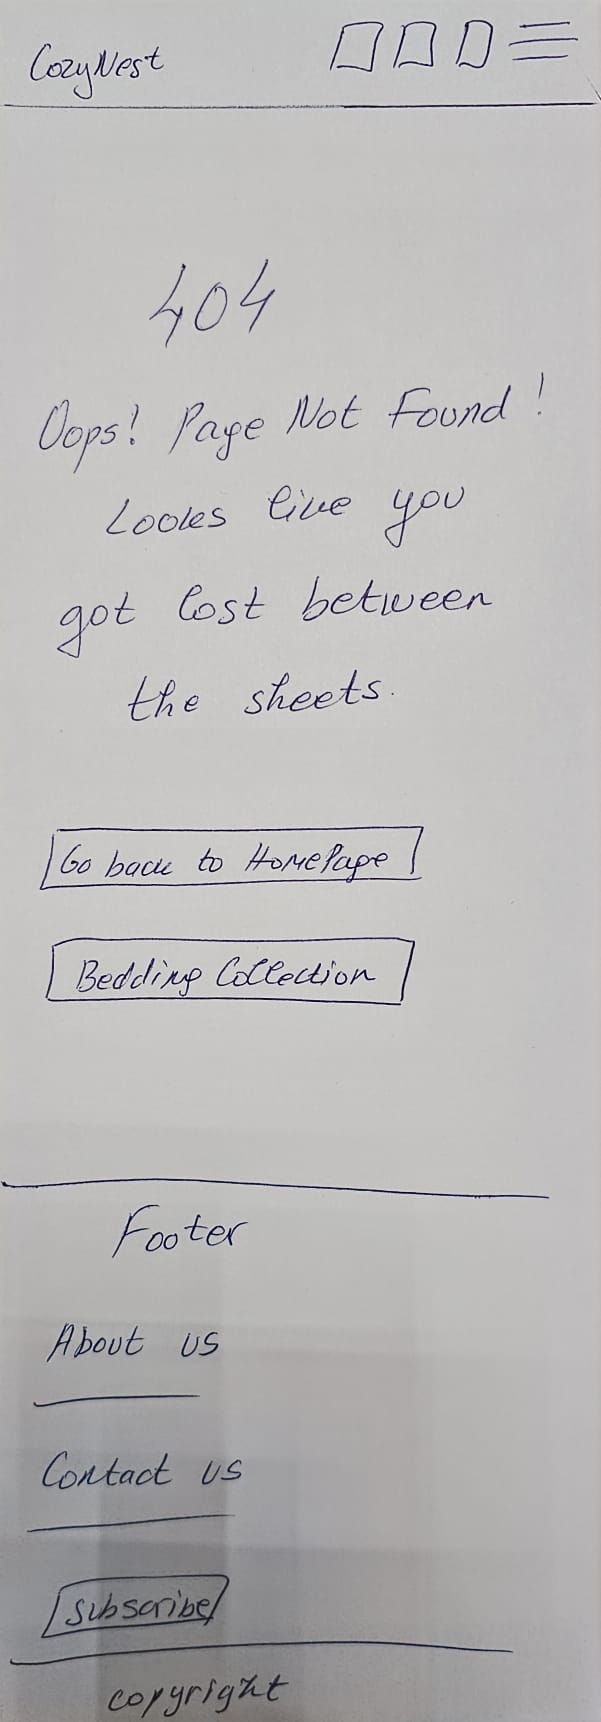 CozyNest
404
Oops! Page Not Found!
Looks like you
got lost between
the sheets.
Go back to HomePage
Bedding Collection
Footer
About us
Contact us
Subscribe
copyright